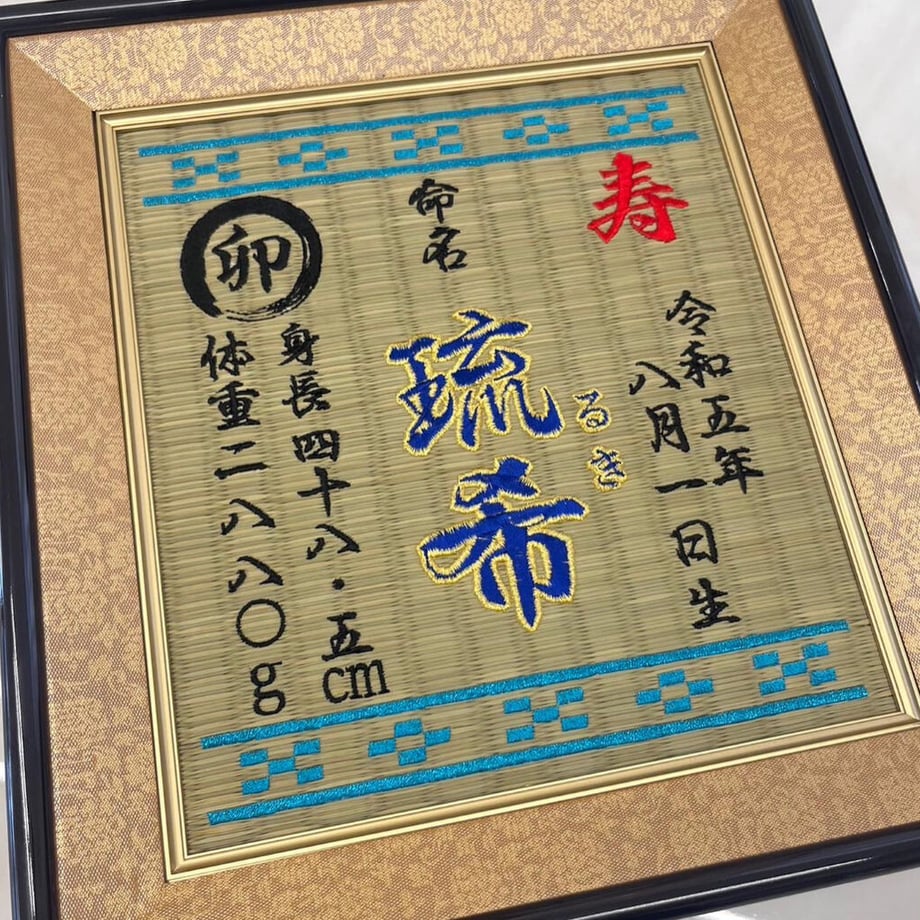 寿
令和五年
八月一日生
命名
琉希
るき
卯
身長四十八・五cm
体重二八八〇g